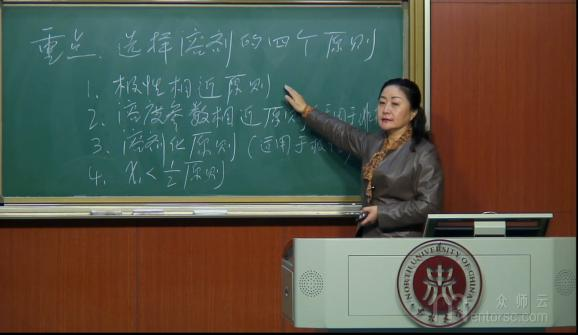 重点. 选择溶剂的四个原则
1. 极性相近原则
2. 溶度参数相近原则 适用于非
3. 溶剂化原则 (适用于极
4. χ₁<1/2原则
NORTH UNIVERSITY OF CHINA
众师云
entorsc.com